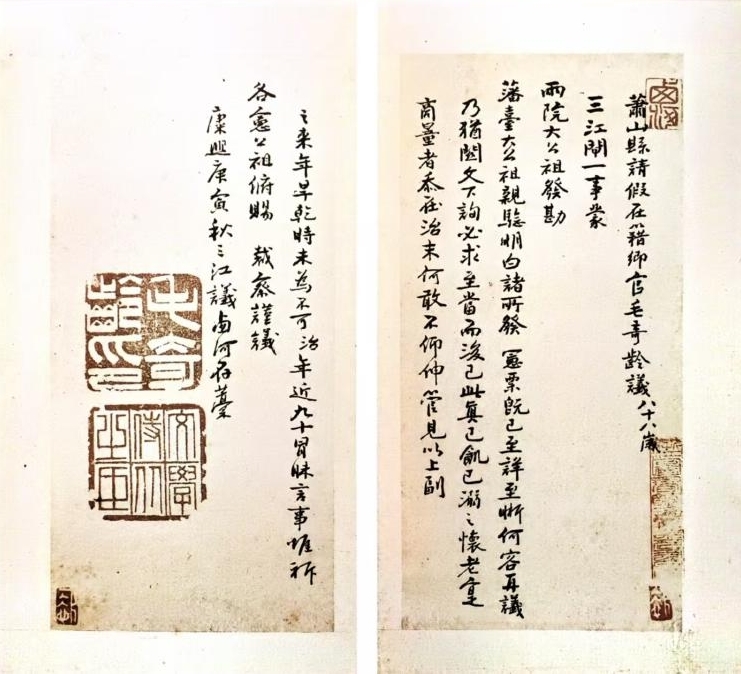 蕭山縣請假在籍鄉官毛奇齡議八十八歲
三江閘一事蒙
兩院大公祖發勘
藩臺大公祖親驗明白諸所發 憲票既已至詳至晰何容再議
乃猶閎文下詢必求至當而後已此真已飢已溺之懷老
商量者忝在治末何敢不仰伸管見以上副
之来年旱乾時未為不可治年近九十冒昧言事惟祈
各憲公祖俯賜 裁察謹議
康熙庚寅秋三江議鹵河存藁
毛奇齡印
文學侍從之臣